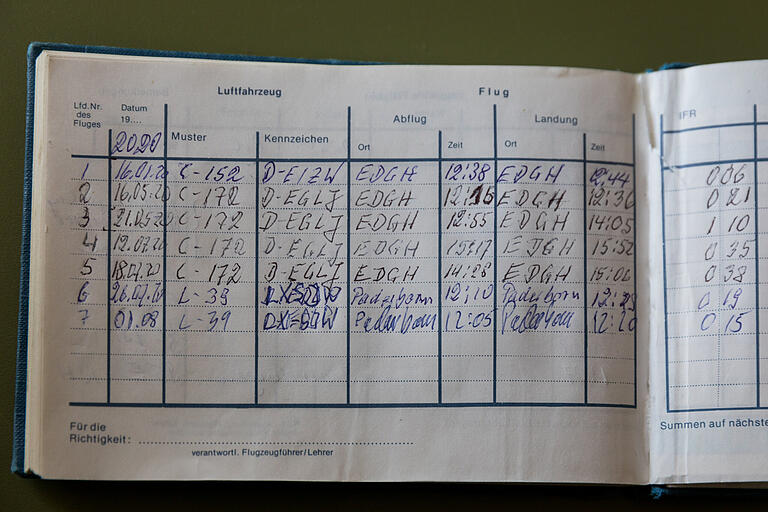 Luftfahrzeug Flug
Lfd.Nr. des Fluges Datum 19.... Abflug Landung IFR
2020 Muster Kennzeichen Ort Zeit Ort Zeit
1 16.01.20 C-152 D-EIZW EDGH 12:38 EDGH 12:44 0 06
2 16.05.20 C-172 D-EGLJ EDGH 12:15 EDGH 12:36 0 21
3 21.05.20 C-172 D-EGLJ EDGH 12:55 EDGH 14:05 1 10
4 12.07.20 C-172 D-EGLJ EDGH 15:17 EDGH 15:52 0 35
5 18.07.20 C-172 D-EGLJ EDGH 14:28 EDGH 15:06 0 38
6 26.07.20 L-39 Paderborn 12:10 Paderborn 0 19
7 01.08 L-39 Paderborn 12:05 Paderborn 12:20 0 15
Für die
Richtigkeit: Summen auf nächste
verantwortl. Flugzeugführer/Lehrer